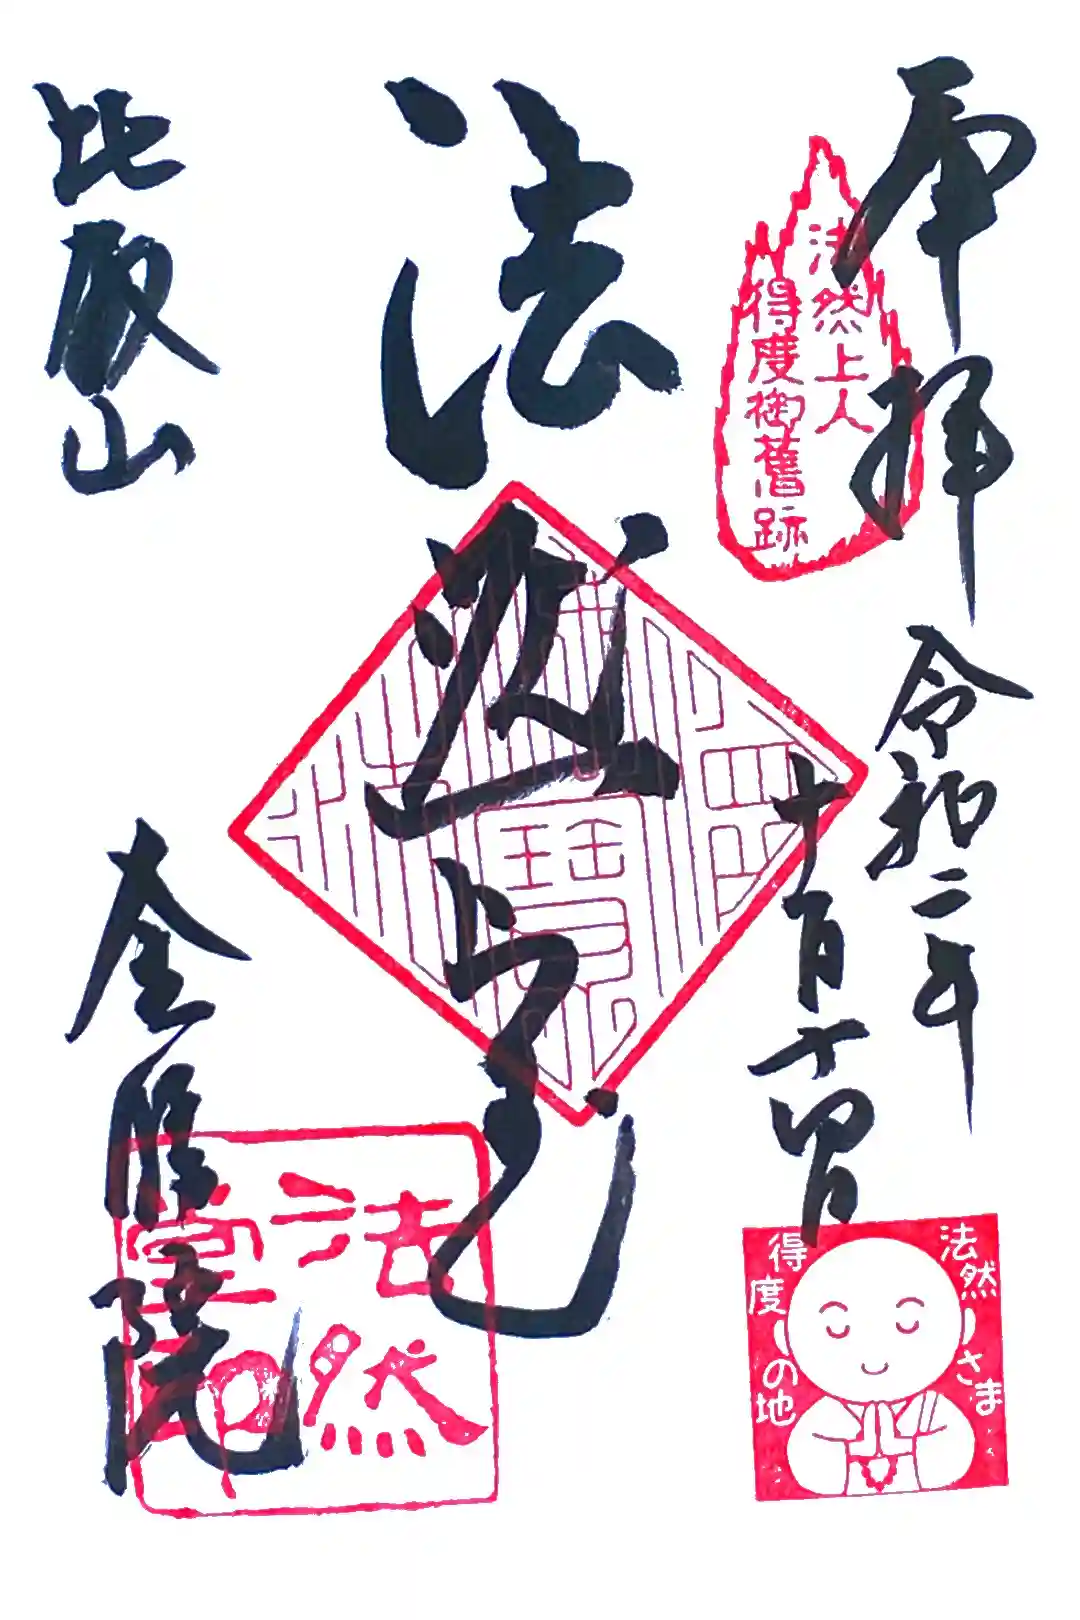 奉拝
令和二年
十一月十四日
法然上人
得度御舊跡
法然上人
比叡山
金勝院
法然
堂印
法然さま
得度の地